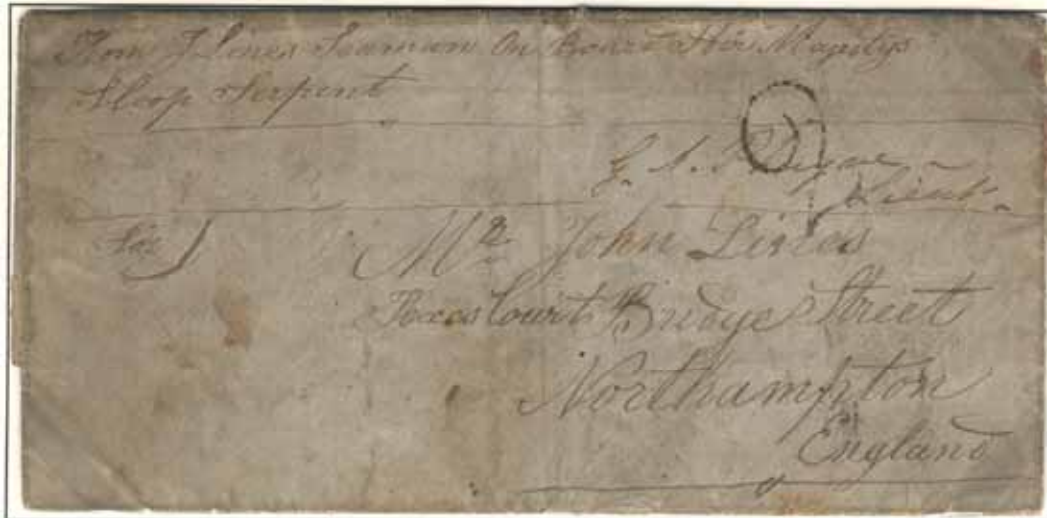 From J Lines Seaman On Board Her Majestys
Sloop Serpent
G. A.
Lieut.
Mr John Lines
Court Bridge Street
Northampton
England